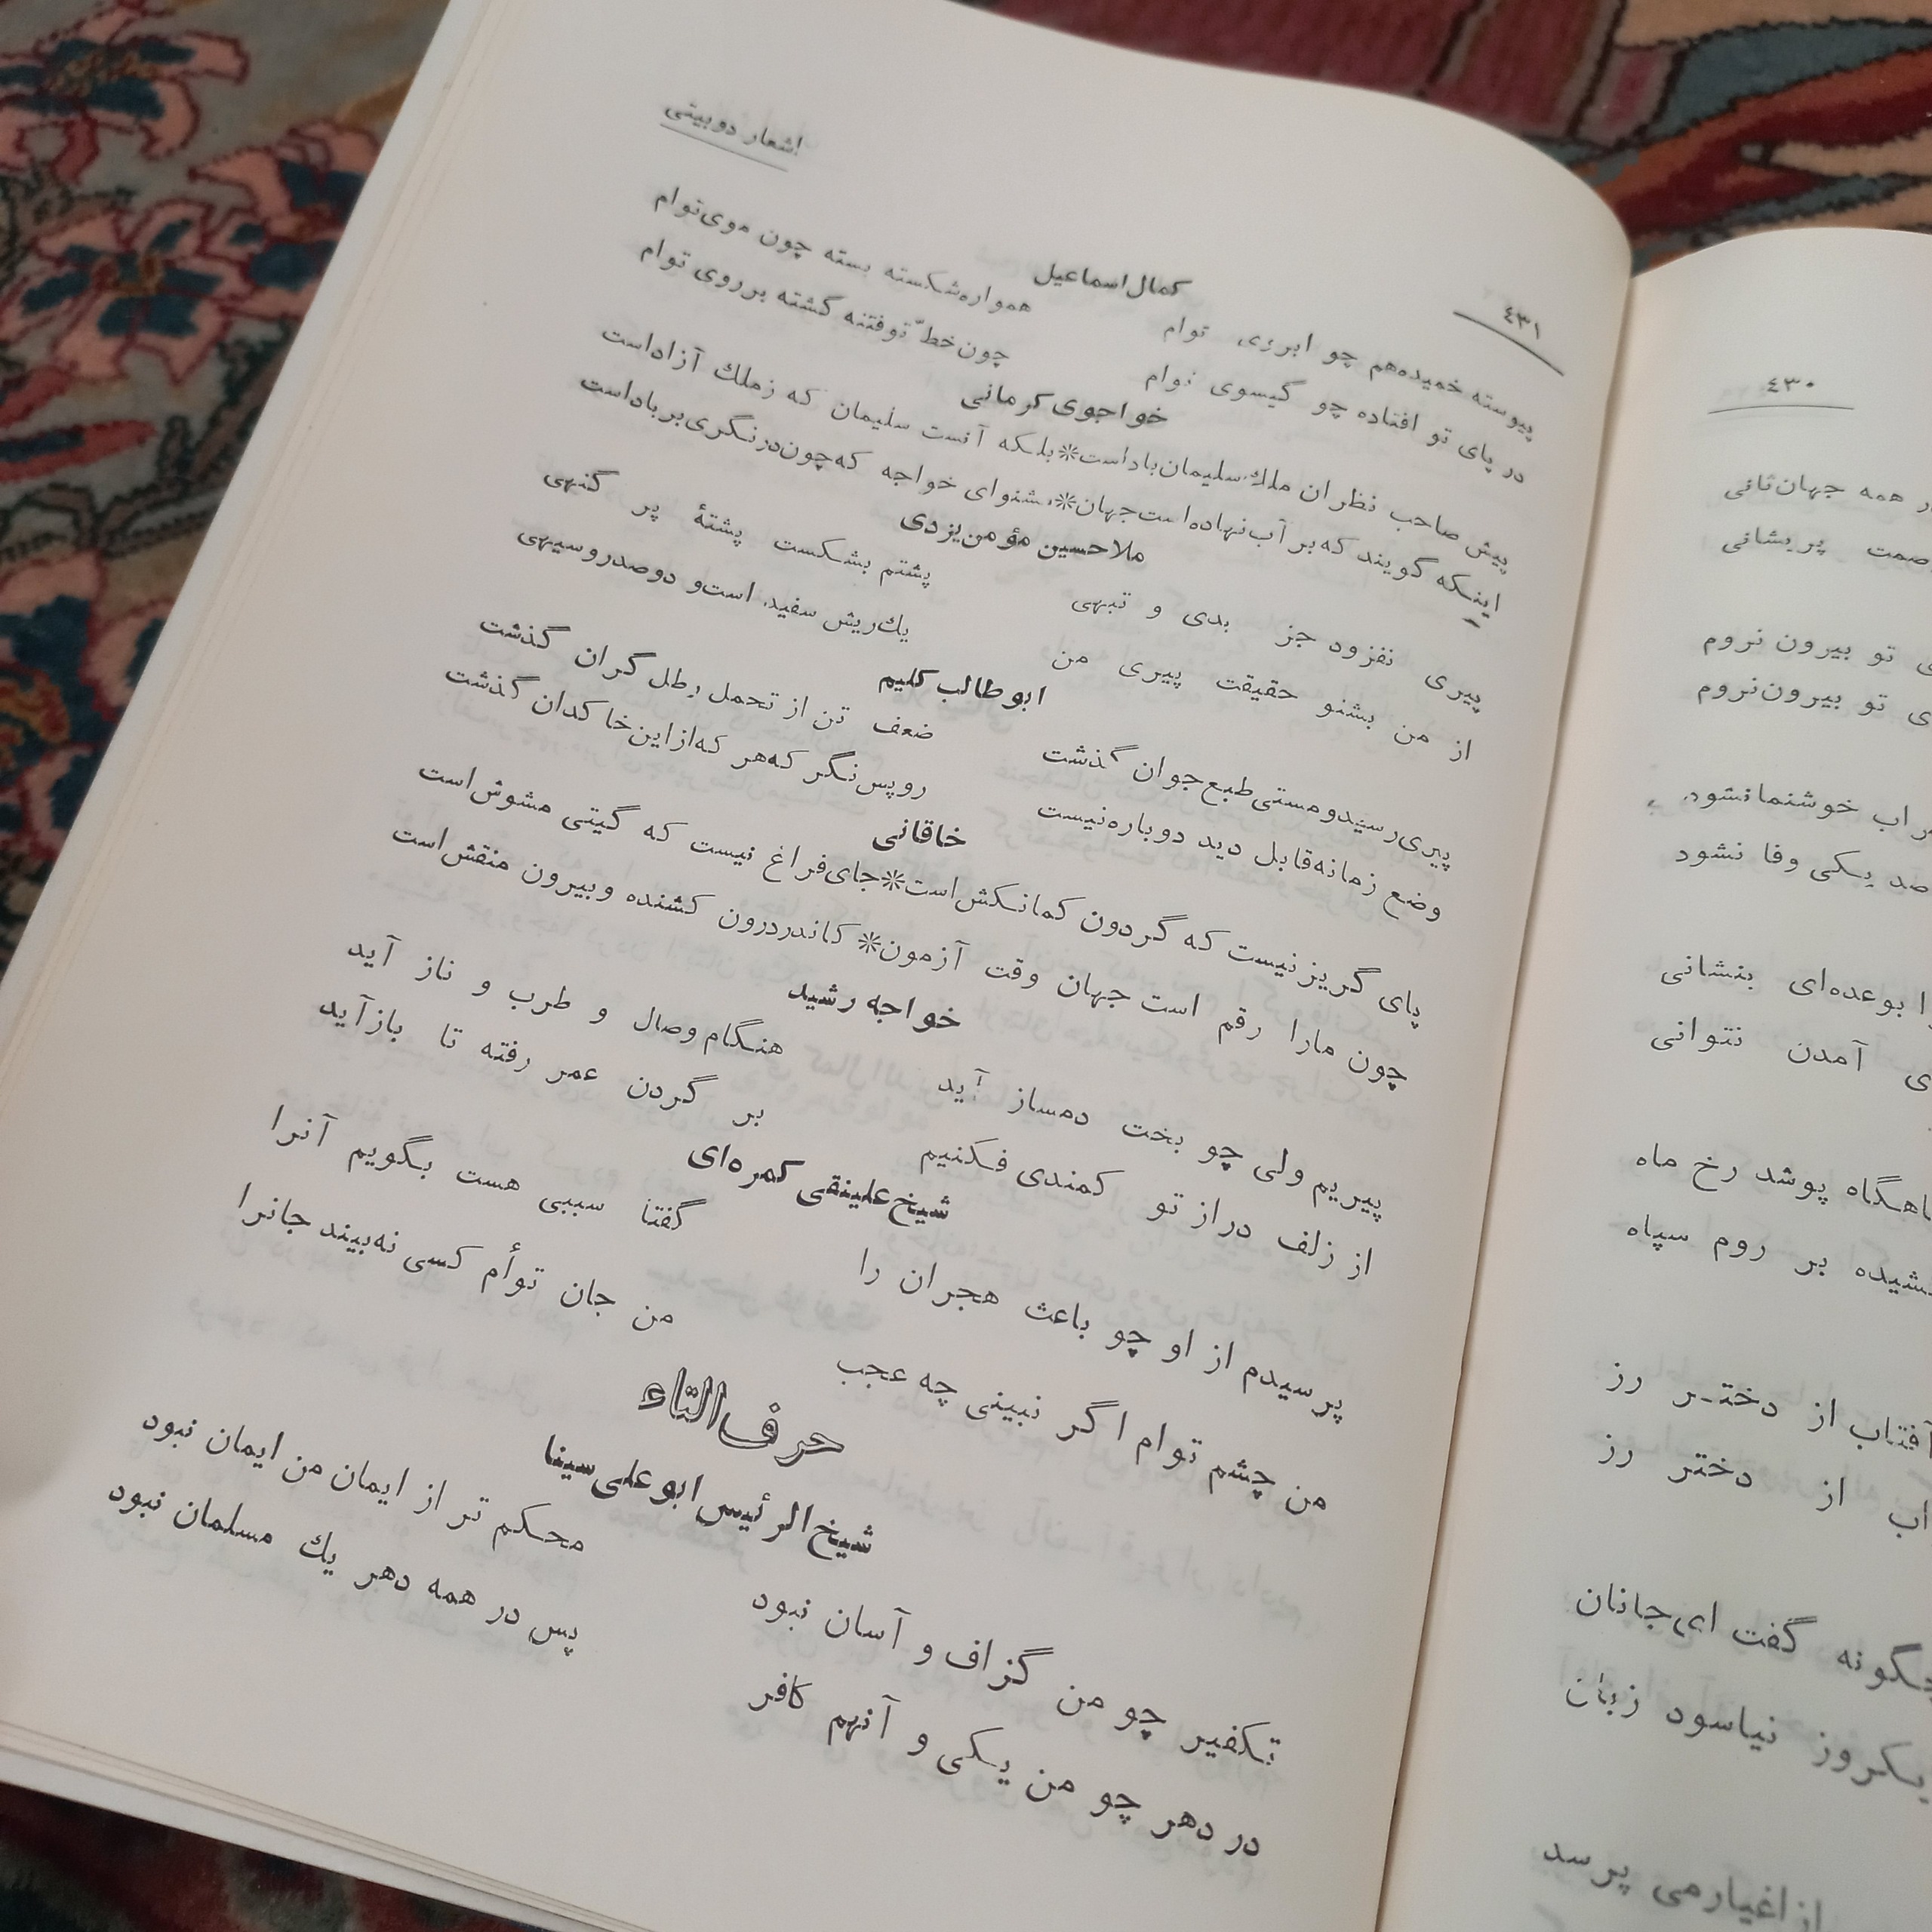 ٤٣١
اشعار دوبیتی
کمال اسماعیل
پیوسته خمیده‌هم چو ابروی توام همواره‌شکسته بسته چون موی‌توام
در پای تو افتاده چو گیسوی توام چون‌خطّ توفتنه گشته برروی توام
خواجوی کرمانی
پیش صاحب نظران ملك‌سلیمان‌باداست*بلکه آنست سلیمان که زملك آزاداست
اینکه گویند که‌بر آب‌نهاده‌است‌جهان*مشنوای خواجه که‌چون‌درنگری‌برباداست
ملاحسین مؤمن‌یزدی
پیری نفزود جز بدی و تبهی پشتم بشکست پشتهٔ پر گنهی
از من بشنو حقیقت پیری من یك‌ریش سفید، است‌و دوصدروسیهی
ابوطالب کلیم
پیری‌رسیدومستی‌طبع‌جوان گذشت ضعف تن از تحمل رطل گران گذشت
وضع زمانه‌قابل دید دوباره‌نیست روپس‌نگر که‌هر که‌ازاین‌خاکدان گذشت
خاقانی
پای گریزنیست که گردون کمانکش‌است*جای‌فراغ نیست که گیتی مشوش‌است
چون مارا رقم است جهان وقت آزمون*کاندردرون کشنده وبیرون منقش‌است
خواجه رشید
پیریم ولی چو بخت دمساز آید هنگام وصال و طرب و ناز آید
از زلف دراز تو کمندی فکنیم بر گردن عمر رفته تا بازآید
شیخ‌علینقی کمره‌ای
پرسیدم از او چو باعث هجران را گفتا سببی هست بگویم آنرا
من چشم توام اگر نبینی چه عجب من جان توأم کسی نه‌بیند جانرا
حرف‌التاء
شیخ‌الرئیس ابوعلی‌سینا
تکفیر چو من گزاف و آسان نبود محکم تر از ایمان من ایمان نبود
در دهر چو من یکی و آنهم کافر پس در همه دهر یك مسلمان نبود
٤٣٠
همه جهان‌ثانی
پریشانی
تو بیرون نروم
تو بیرون‌نروم
خوشنمانشود
صد یکی وفا نشود
بوعده‌ای بنشانی
آمدن نتوانی
پوشد رخ ماه
بر روم سپاه
آفتاب از دختر رز
از دختر رز
گفت ای‌جانان
یکروز نیاسود زبان
ازاغیارمی پرسد